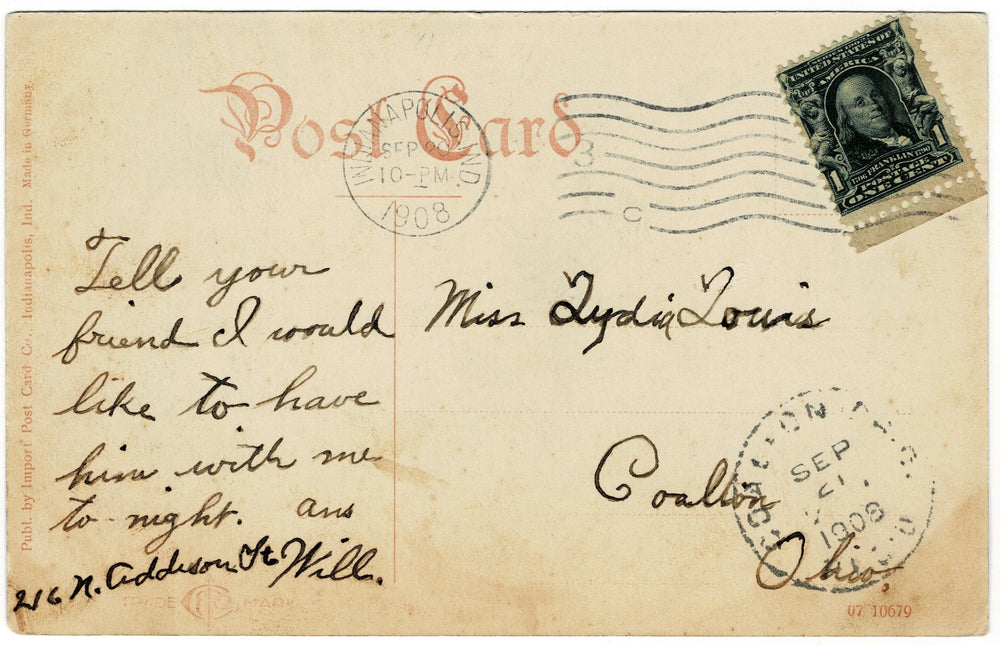 Post Card
INDIANAPOLIS, IND.
SEP 20
10-PM
1908
3
C
UNITED STATES OF
AMERICA
1706 FRANKLIN 1790
POSTAGE
1 ONE CENT 1
Tell your
friend I would
like to have
him with me
to-night. ans
216 N. Addison St Will.
Miss Lydia Louis
Coalton
Ohio,
COALTON
SEP
21
1908
OHIO
Publ. by Import Post Card Co., Indianapolis, Ind. Made in Germany.
TRADE MARK
U7 10679